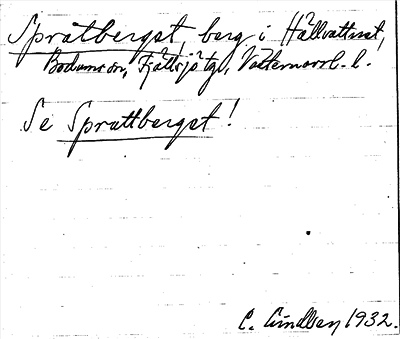 Spratberget, berg i Hällvattnet,
Bodums sn, Fjällsjö tgl, Västernorrl. l.
Se Sprattberget!
C. Lindsten 1932.